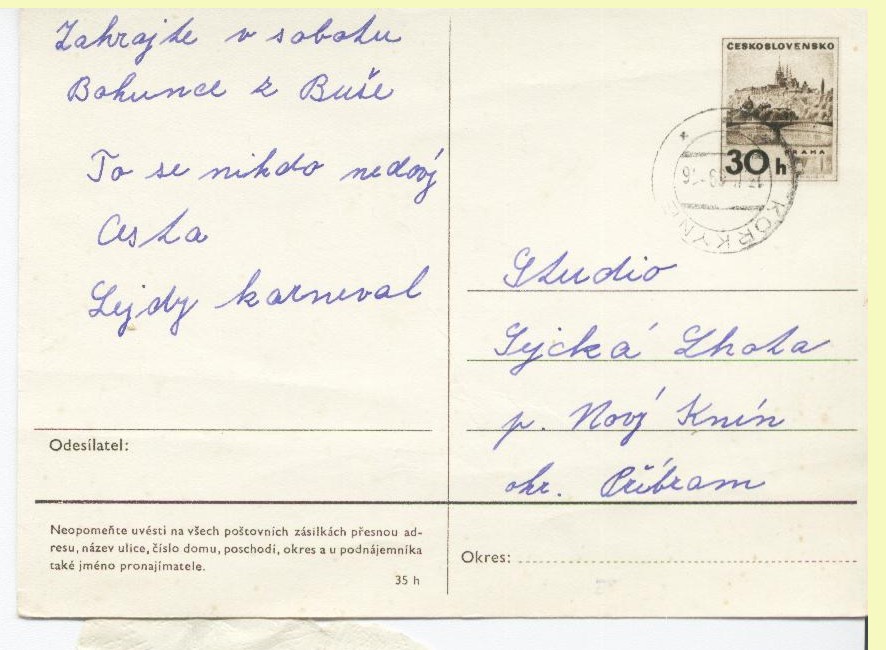 Zahrajte v sobotu
Bohunce z Buše
To se nikdo nedoví
Cesta
Lejdy karneval
Odesílatel:
Neopomeňte uvésti na všech poštovních zásilkách přesnou ad-
resu, název ulice, číslo domu, poschodí, okres a u podnájemníka
také jméno pronajímatele.
35 h
ČESKOSLOVENSKO
PRAHA
30 h
KORKYNĚ
Studio
Sejcká Lhota
p. Nový Knín
okr. Příbram
Okres: